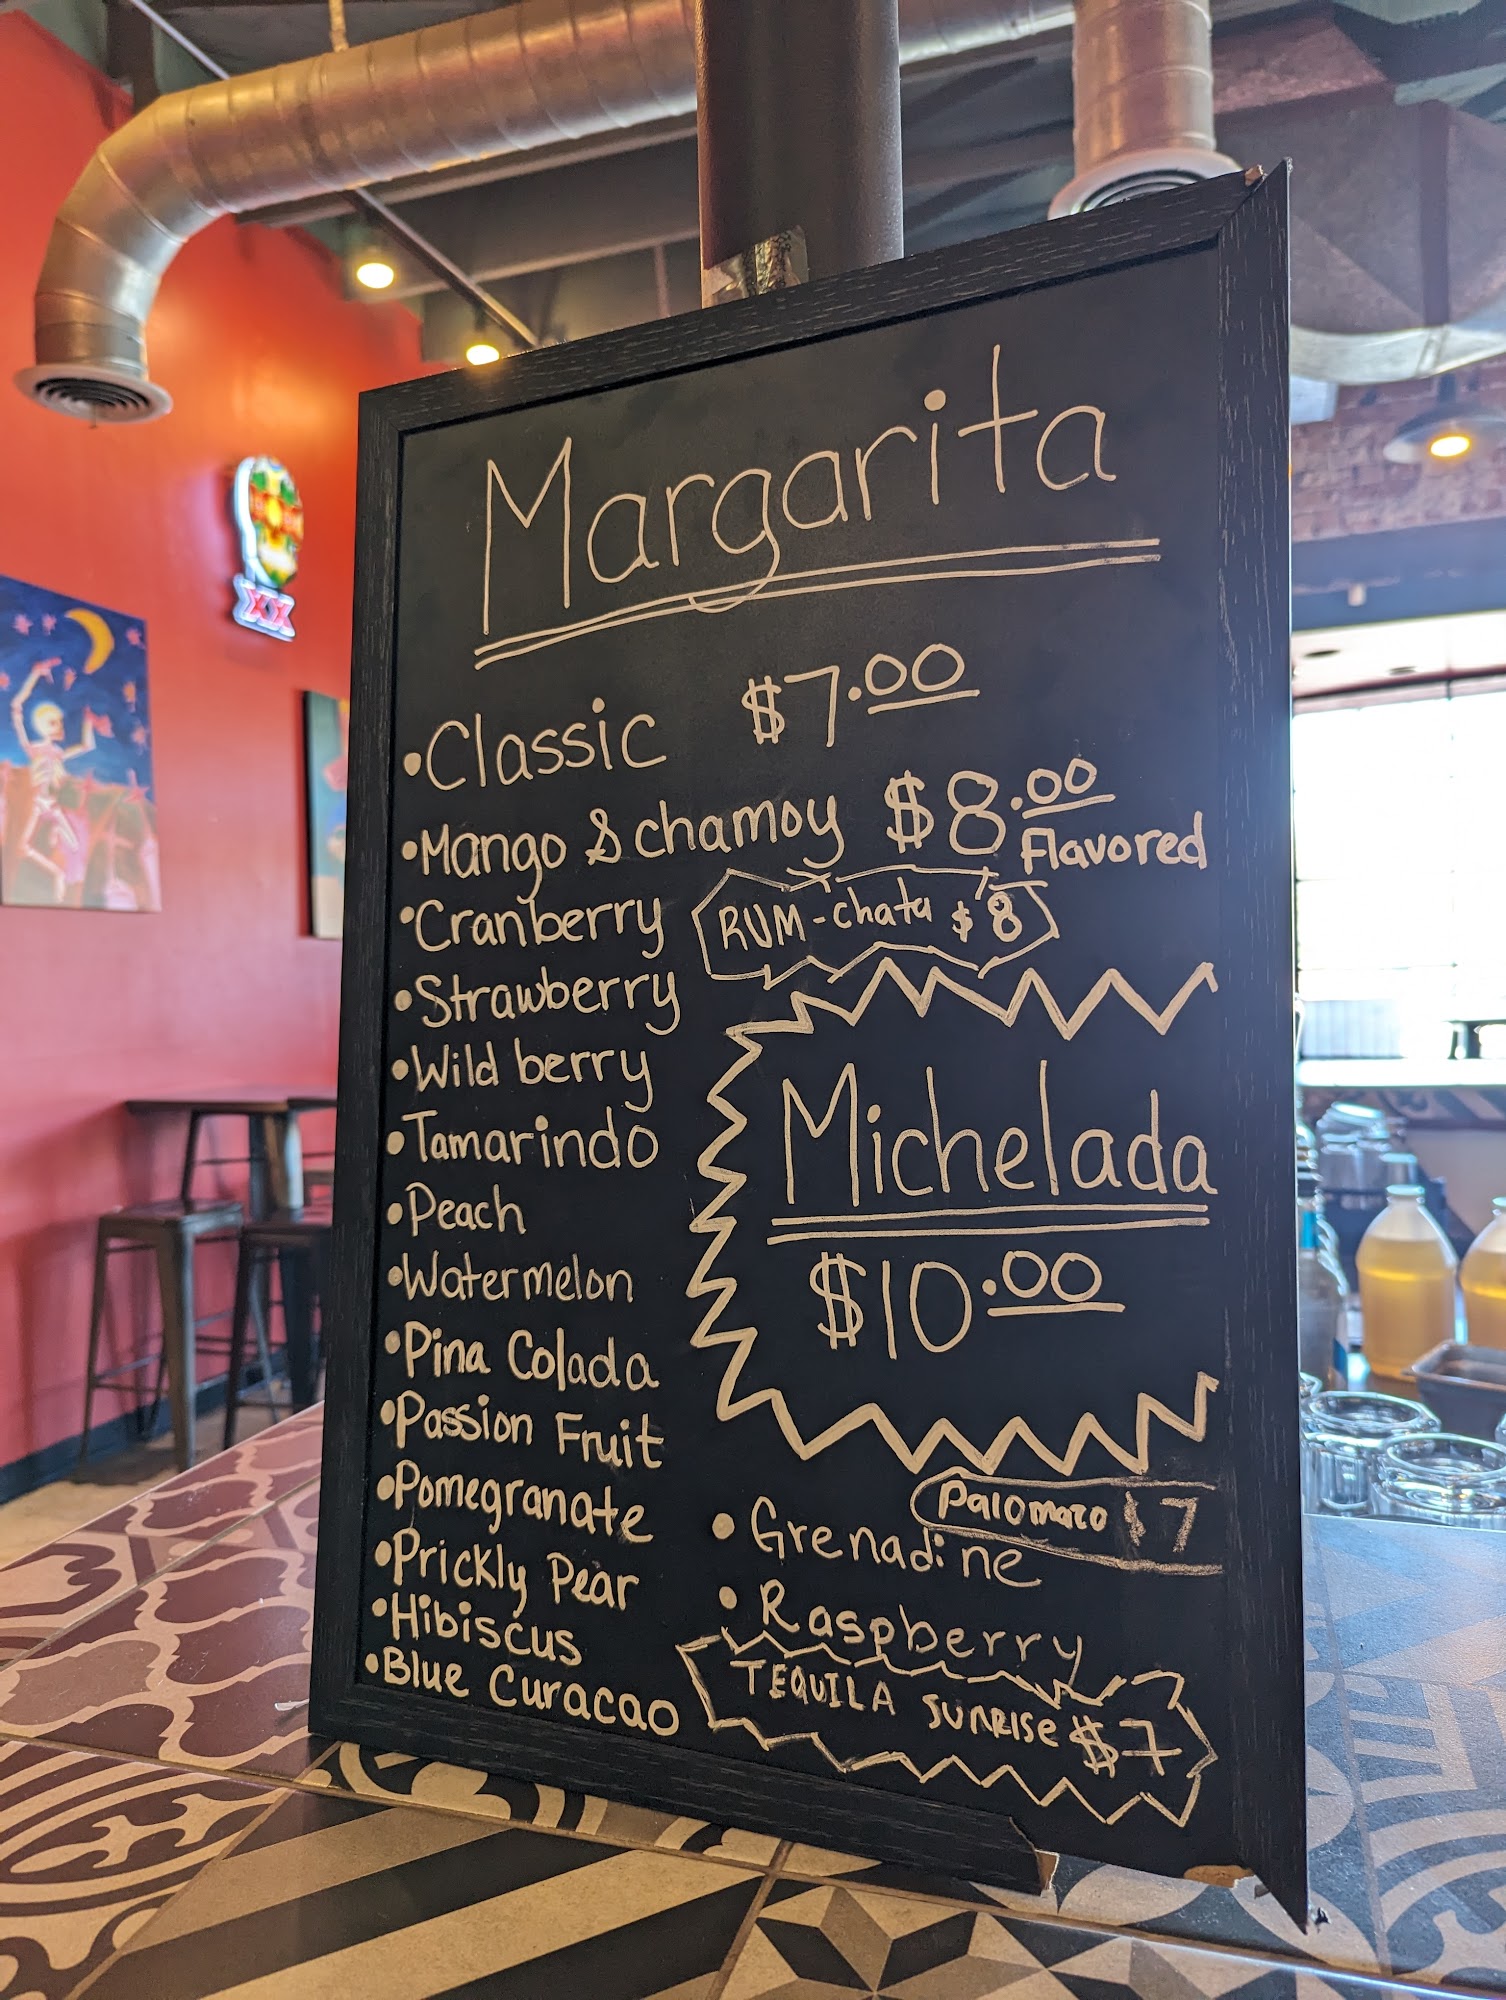 Margarita
•Classic $7.00
•Mango & chamoy $8.00
Flavored
•Cranberry
RUM-chata $8
•Strawberry
•Wild berry
•Tamarindo
•Peach
•Watermelon
•Pina Colada
•Passion Fruit
•Pomegranate
•Prickly Pear
•Hibiscus
•Blue Curacao
Michelada
$10.00
Palomazo $7
•Grenadine
•Raspberry
TEQUILA SUNRISE $7
XX